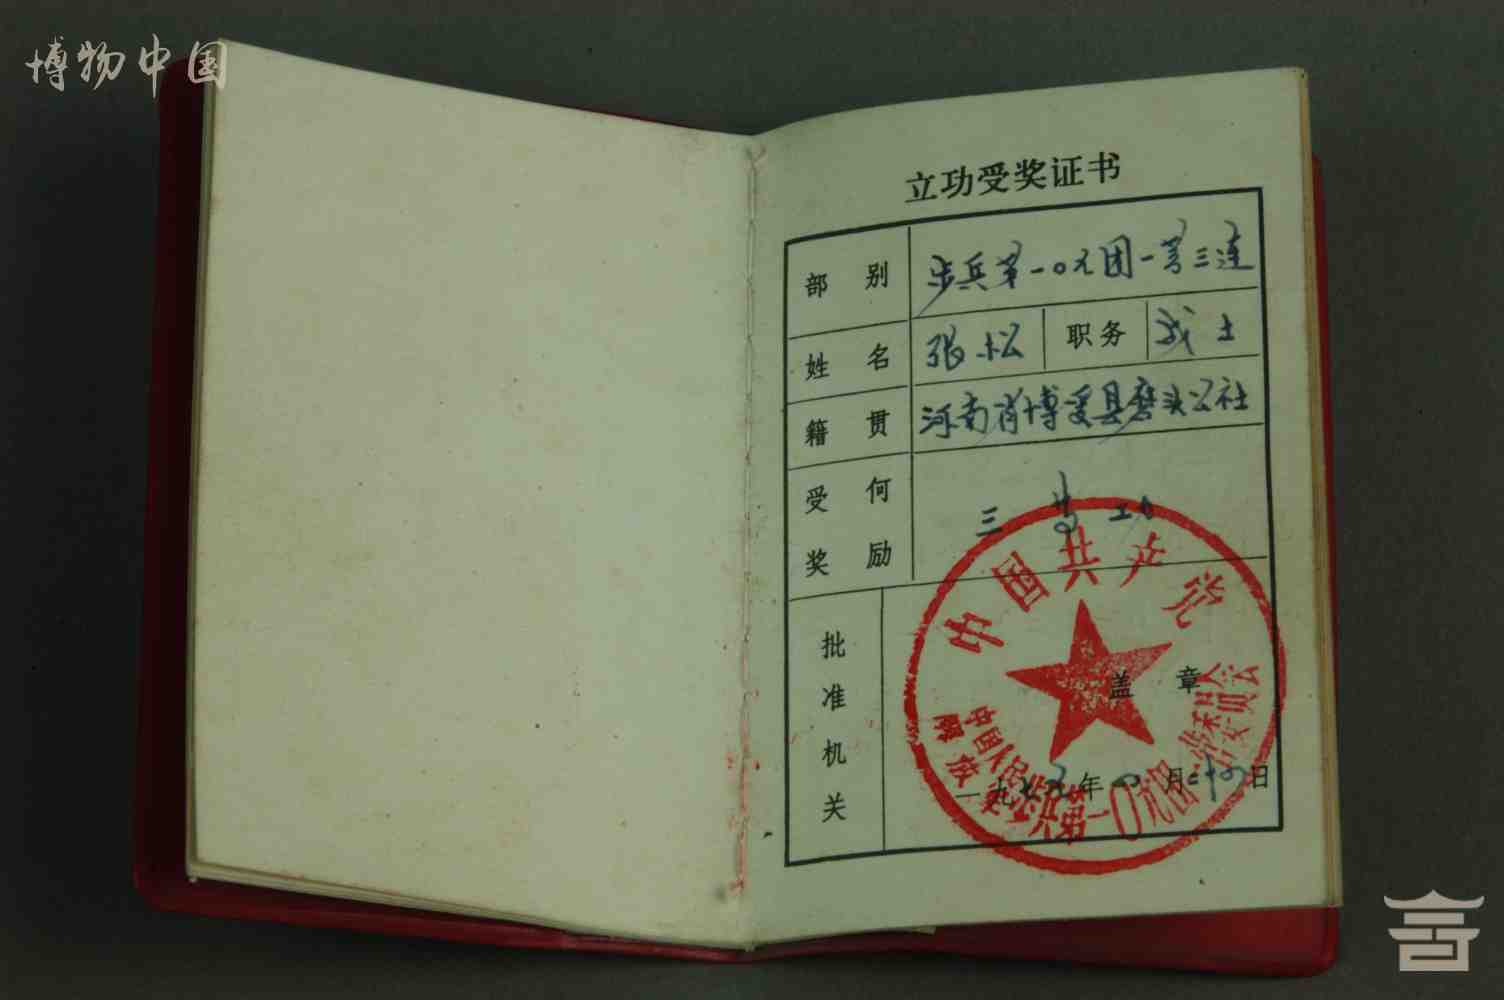 博物中国
立功受奖证书
部别 步兵第一〇九团一营三连
姓名 张松 职务 战士
籍贯 河南省博爱县磨头公社
受何奖励 三等功
批准机关
盖章
一九七九年 月二十四日
中国共产党
中国人民解放军步兵第一〇九团一营委员会